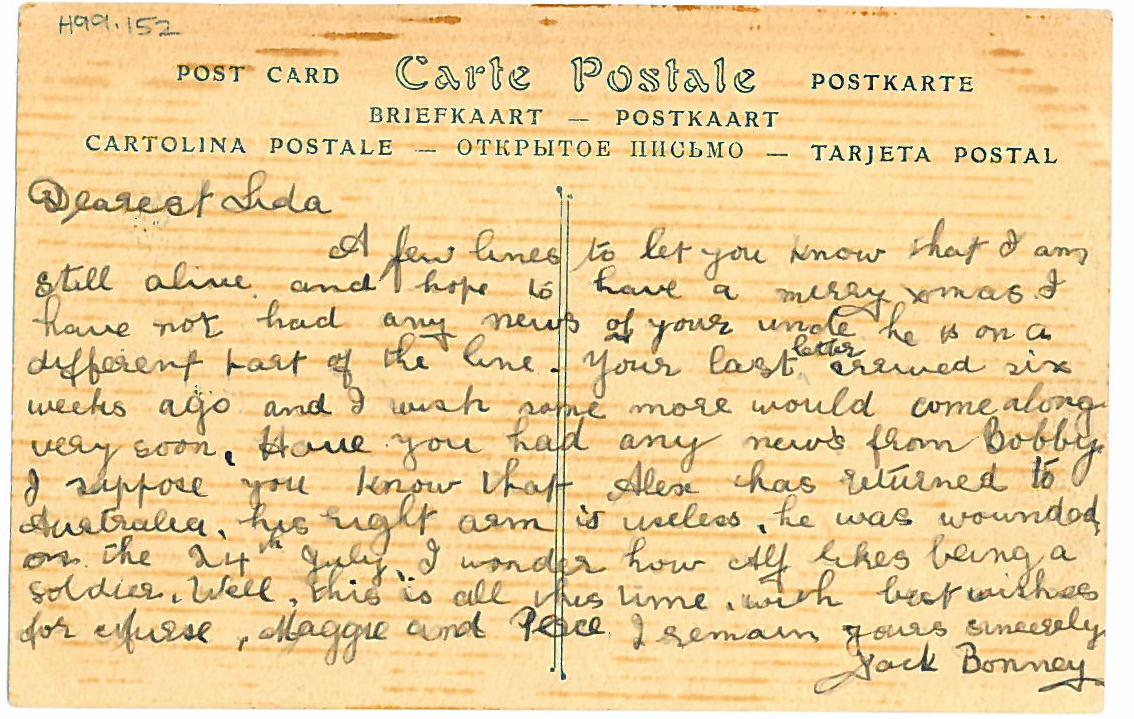 H99.152
POST CARD Carte Postale POSTKARTE
BRIEFKAART — POSTKAART
CARTOLINA POSTALE — ОТКРЫТОЕ ПИСЬМО — TARJETA POSTAL
Dearest Lida
A few lines to let you know that I am
still alive and hope to have a merry xmas I
have not had any news of your uncle he is on a
different part of the line. Your last letter arrived six
weeks ago and I wish some more would come along
very soon, Have you had any news from Bobby.
I suppose you know that Alex has returned to
Australia, his right arm is useless, he was wounded
on the 24th July, I wonder how Alf likes being a
soldier. Well, this is all this time, with best wishes
for Nurse, Maggie and I remain yours sincerely
Jack Bonney